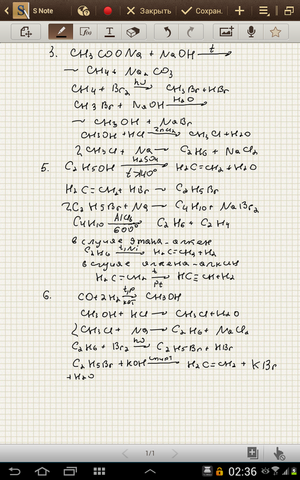 S Note
Закрыть
Сохран.
3. CH3COONa + NaOH —t→
~ CH4 + Na2CO3
CH4 + Br2 —hν→ CH3Br + HBr
CH3Br + NaOH —H2O→
~ CH3OH + NaBr
CH3OH + HCl → CH3Cl + H2O
2CH3Cl + Na → C2H6 + NaCl2
5. C2H5OH —H2SO4 t>140°→ H2C=CH2 + H2O
H2C=CH2 + HBr → C2H5Br
2C2H5Br + Na → C4H10 + NaBr2
C4H10 —AlCl3 600°→ C2H6 + C2H4
в случае этана - алкен
C2H6 —t, Ni→ H2C=CH2 + H2
в случае алкена - алкин
H2C=CH2 —t Pt→ HC≡CH + H2
6. CO + 2H2 —t,p кат→ CH3OH
CH3OH + HCl → CH3Cl + H2O
2CH3Cl + Na → C2H6 + NaCl2
C2H6 + Br2 —hν→ C2H5Br + HBr
C2H5Br + KOH —спирт→ H2C=CH2 + KBr
+ H2O
1/1
02:36